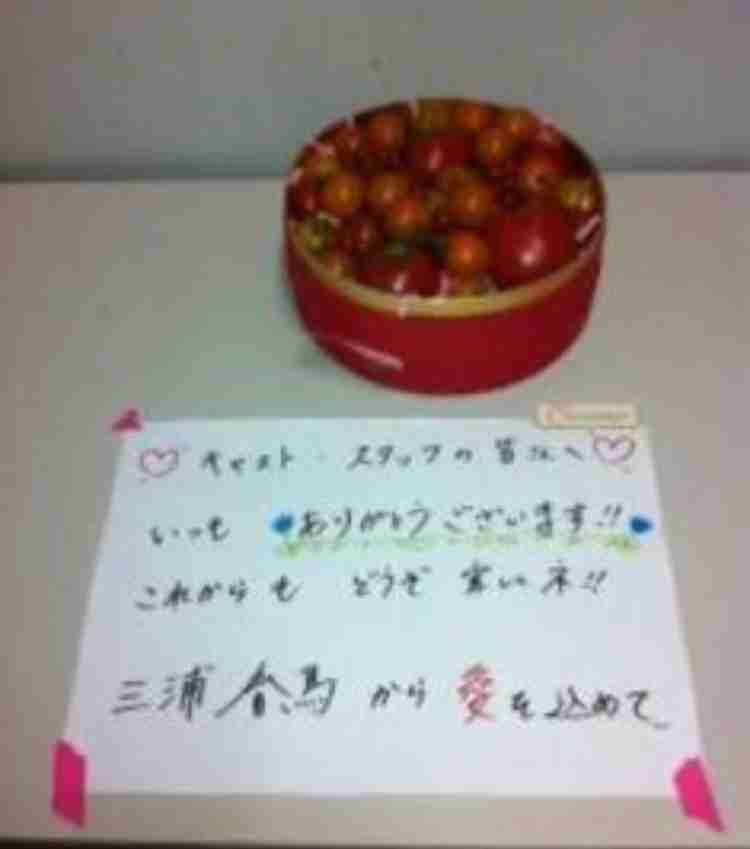 ♡ キャスト・スタッフの 皆 へ ♡
いつも ありがとうございます!!
これからも どうぞ ネ!!
三浦春馬 から 愛を込めて